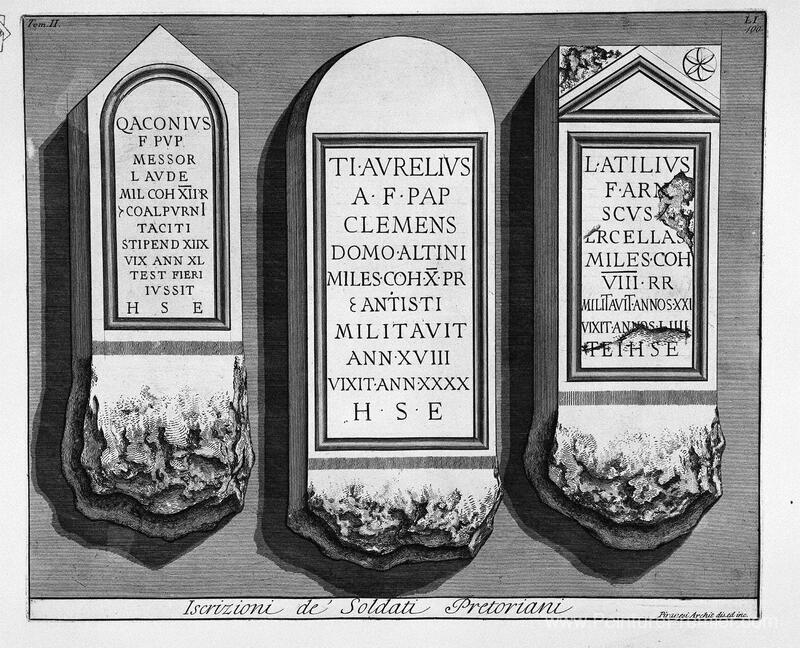 Tom. II.
LI
100
Q ACONIVS
F PVP
MESSOR
LAVDE
MIL COH XII PR
COALPVRNI
TACITI
STIPEND XIIX
VIX ANN XL
TEST FIERI
IVSSIT
H S E
TI·AVRELIVS
A·F·PAP
CLEMENS
DOMO·ALTINI
MILES·COH·X·PR
ANTISTI
MILITAVIT
ANN·XVIII
VIXIT·ANN·XXXX
H·S·E
L·ATILIVS
F·ARN
SCVS
ERCELLAS
MILES·COH
VIII·RR
MILITAVIT·ANNOS·XXI
VIXIT·ANNOS·LIIII
TEIHSE
Iscrizioni de' Soldati Pretoriani
Piranesi Archit. dis. ed inc.